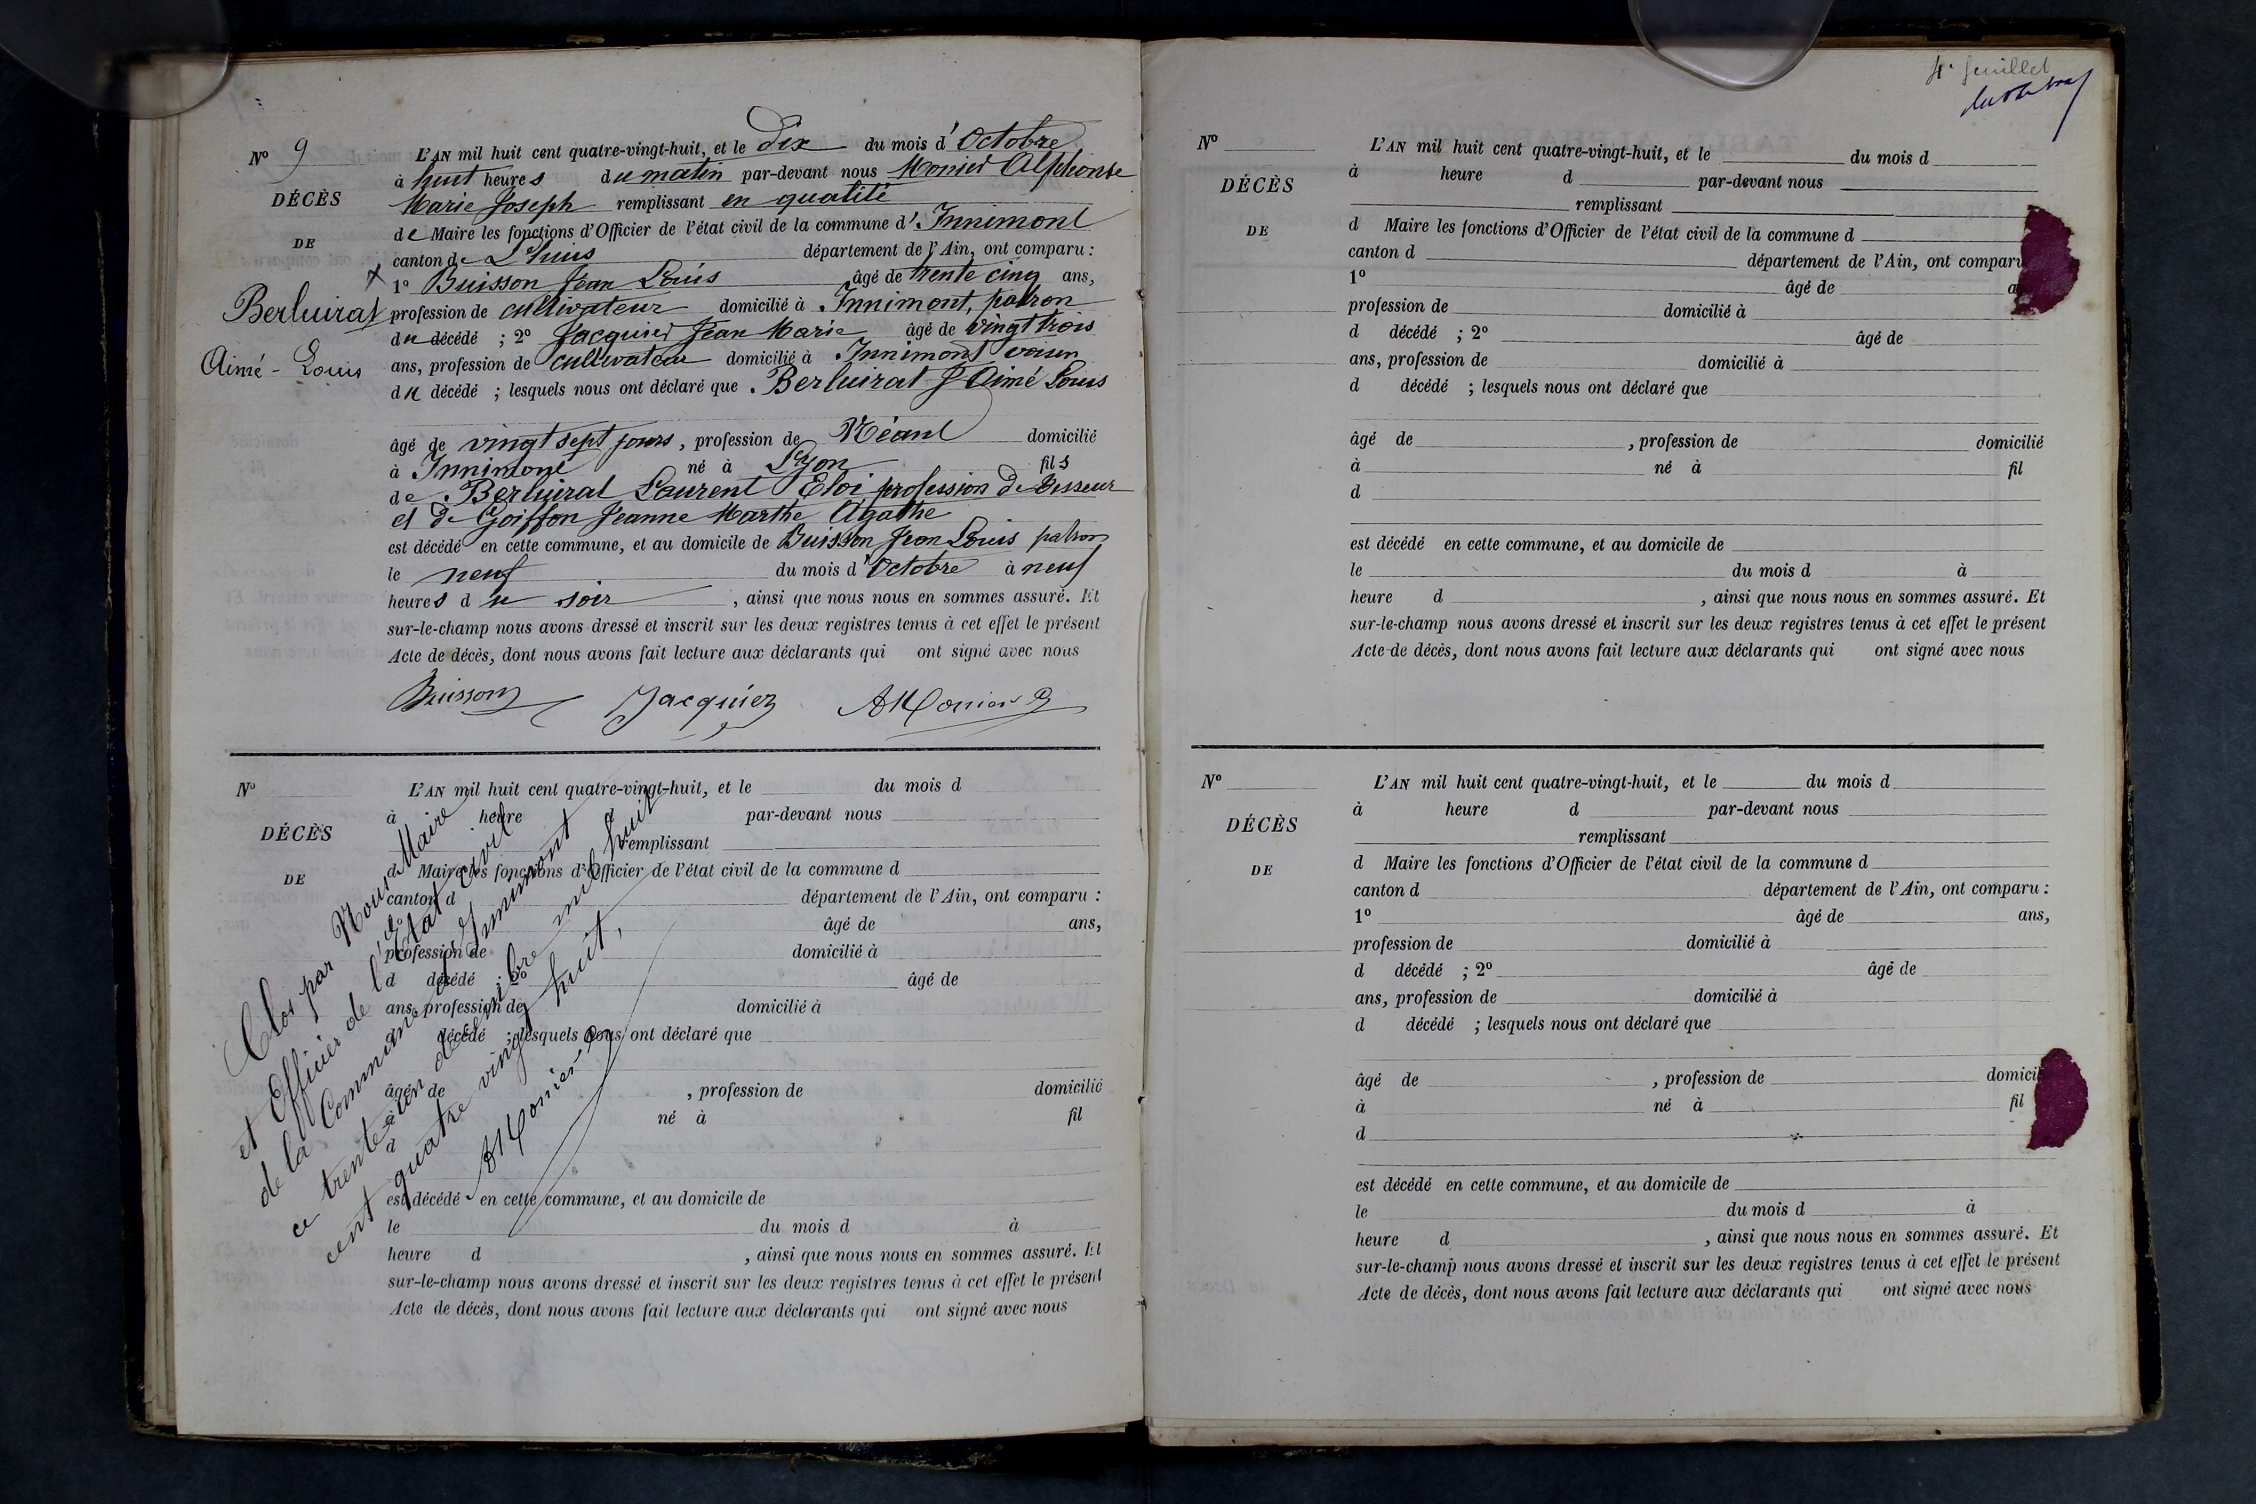 Nº 9
DÉCÈS
DE
Berluirat
Aimé - Louis
L'AN mil huit cent quatre-vingt-huit, et le Dix du mois d'Octobre
à huit heures du matin par-devant nous Monier Alphonse
Marie Joseph remplissant en qualité
de Maire les fonctions d'Officier de l'état civil de la commune d'Innimont
canton de Lhuis département de l'Ain, ont comparu :
1º Buisson Jean Louis âgé de trente cinq ans,
profession de cultivateur domicilié à Innimont, patron
du décédé ; 2º Jacquier Jean Marie âgé de vingt trois
ans, profession de cultivateur domicilié à Innimont voisin
du décédé ; lesquels nous ont déclaré que Berluirat Aimé Louis
âgé de vingt sept jours, profession de Néant domicilié
à Innimont né à Lyon fils
de Berluirat Laurent Eloi profession de
et de Goiffon Jeanne Marthe Agathe
est décédé en cette commune, et au domicile de Buisson Jean Louis patron
le neuf du mois d'Octobre à neuf
heures du soir, ainsi que nous nous en sommes assuré. Et
sur-le-champ nous avons dressé et inscrit sur les deux registres tenus à cet effet le présent
Acte de décès, dont nous avons fait lecture aux déclarants qui ont signé avec nous
Buisson Jacquier A Monier
Nº
DÉCÈS
DE
L'AN mil huit cent quatre-vingt-huit, et le du mois d
à heure d par-devant nous
remplissant
d Maire les fonctions d'Officier de l'état civil de la commune d
canton d département de l'Ain, ont comparu :
1º âgé de ans,
profession de domicilié à
d décédé ; 2º âgé de
ans, profession de domicilié à
d décédé ; lesquels nous ont déclaré que
âgé de , profession de domicilié
à né à fil
d
est décédé en cette commune, et au domicile de
le du mois d à
heure d , ainsi que nous nous en sommes assuré. Et
sur-le-champ nous avons dressé et inscrit sur les deux registres tenus à cet effet le présent
Acte de décès, dont nous avons fait lecture aux déclarants qui ont signé avec nous
Clos par Nous Maire
et Officier de l'Etat civil
de la Commune d'Innimont
ce trente un décembre mil huit
cent quatre vingt huit,
A Monier
4e feuillet
Nº
DÉCÈS
DE
L'AN mil huit cent quatre-vingt-huit, et le du mois d
à heure d par-devant nous
remplissant
d Maire les fonctions d'Officier de l'état civil de la commune d
canton d département de l'Ain, ont comparu
1º âgé de a
profession de domicilié à
d décédé ; 2º âgé de
ans, profession de domicilié à
d décédé ; lesquels nous ont déclaré que
âgé de , profession de domicilié
à né à fil
d
est décédé en cette commune, et au domicile de
le du mois d à
heure d , ainsi que nous nous en sommes assuré. Et
sur-le-champ nous avons dressé et inscrit sur les deux registres tenus à cet effet le présent
Acte de décès, dont nous avons fait lecture aux déclarants qui ont signé avec nous
Nº
DÉCÈS
DE
L'AN mil huit cent quatre-vingt-huit, et le du mois d
à heure d par-devant nous
remplissant
d Maire les fonctions d'Officier de l'état civil de la commune d
canton d département de l'Ain, ont comparu :
1º âgé de ans,
profession de domicilié à
d décédé ; 2º âgé de
ans, profession de domicilié à
d décédé ; lesquels nous ont déclaré que
âgé de , profession de domicil
à né à fil
d
est décédé en cette commune, et au domicile de
le du mois d à
heure d , ainsi que nous nous en sommes assuré. Et
sur-le-champ nous avons dressé et inscrit sur les deux registres tenus à cet effet le présent
Acte de décès, dont nous avons fait lecture aux déclarants qui ont signé avec nous